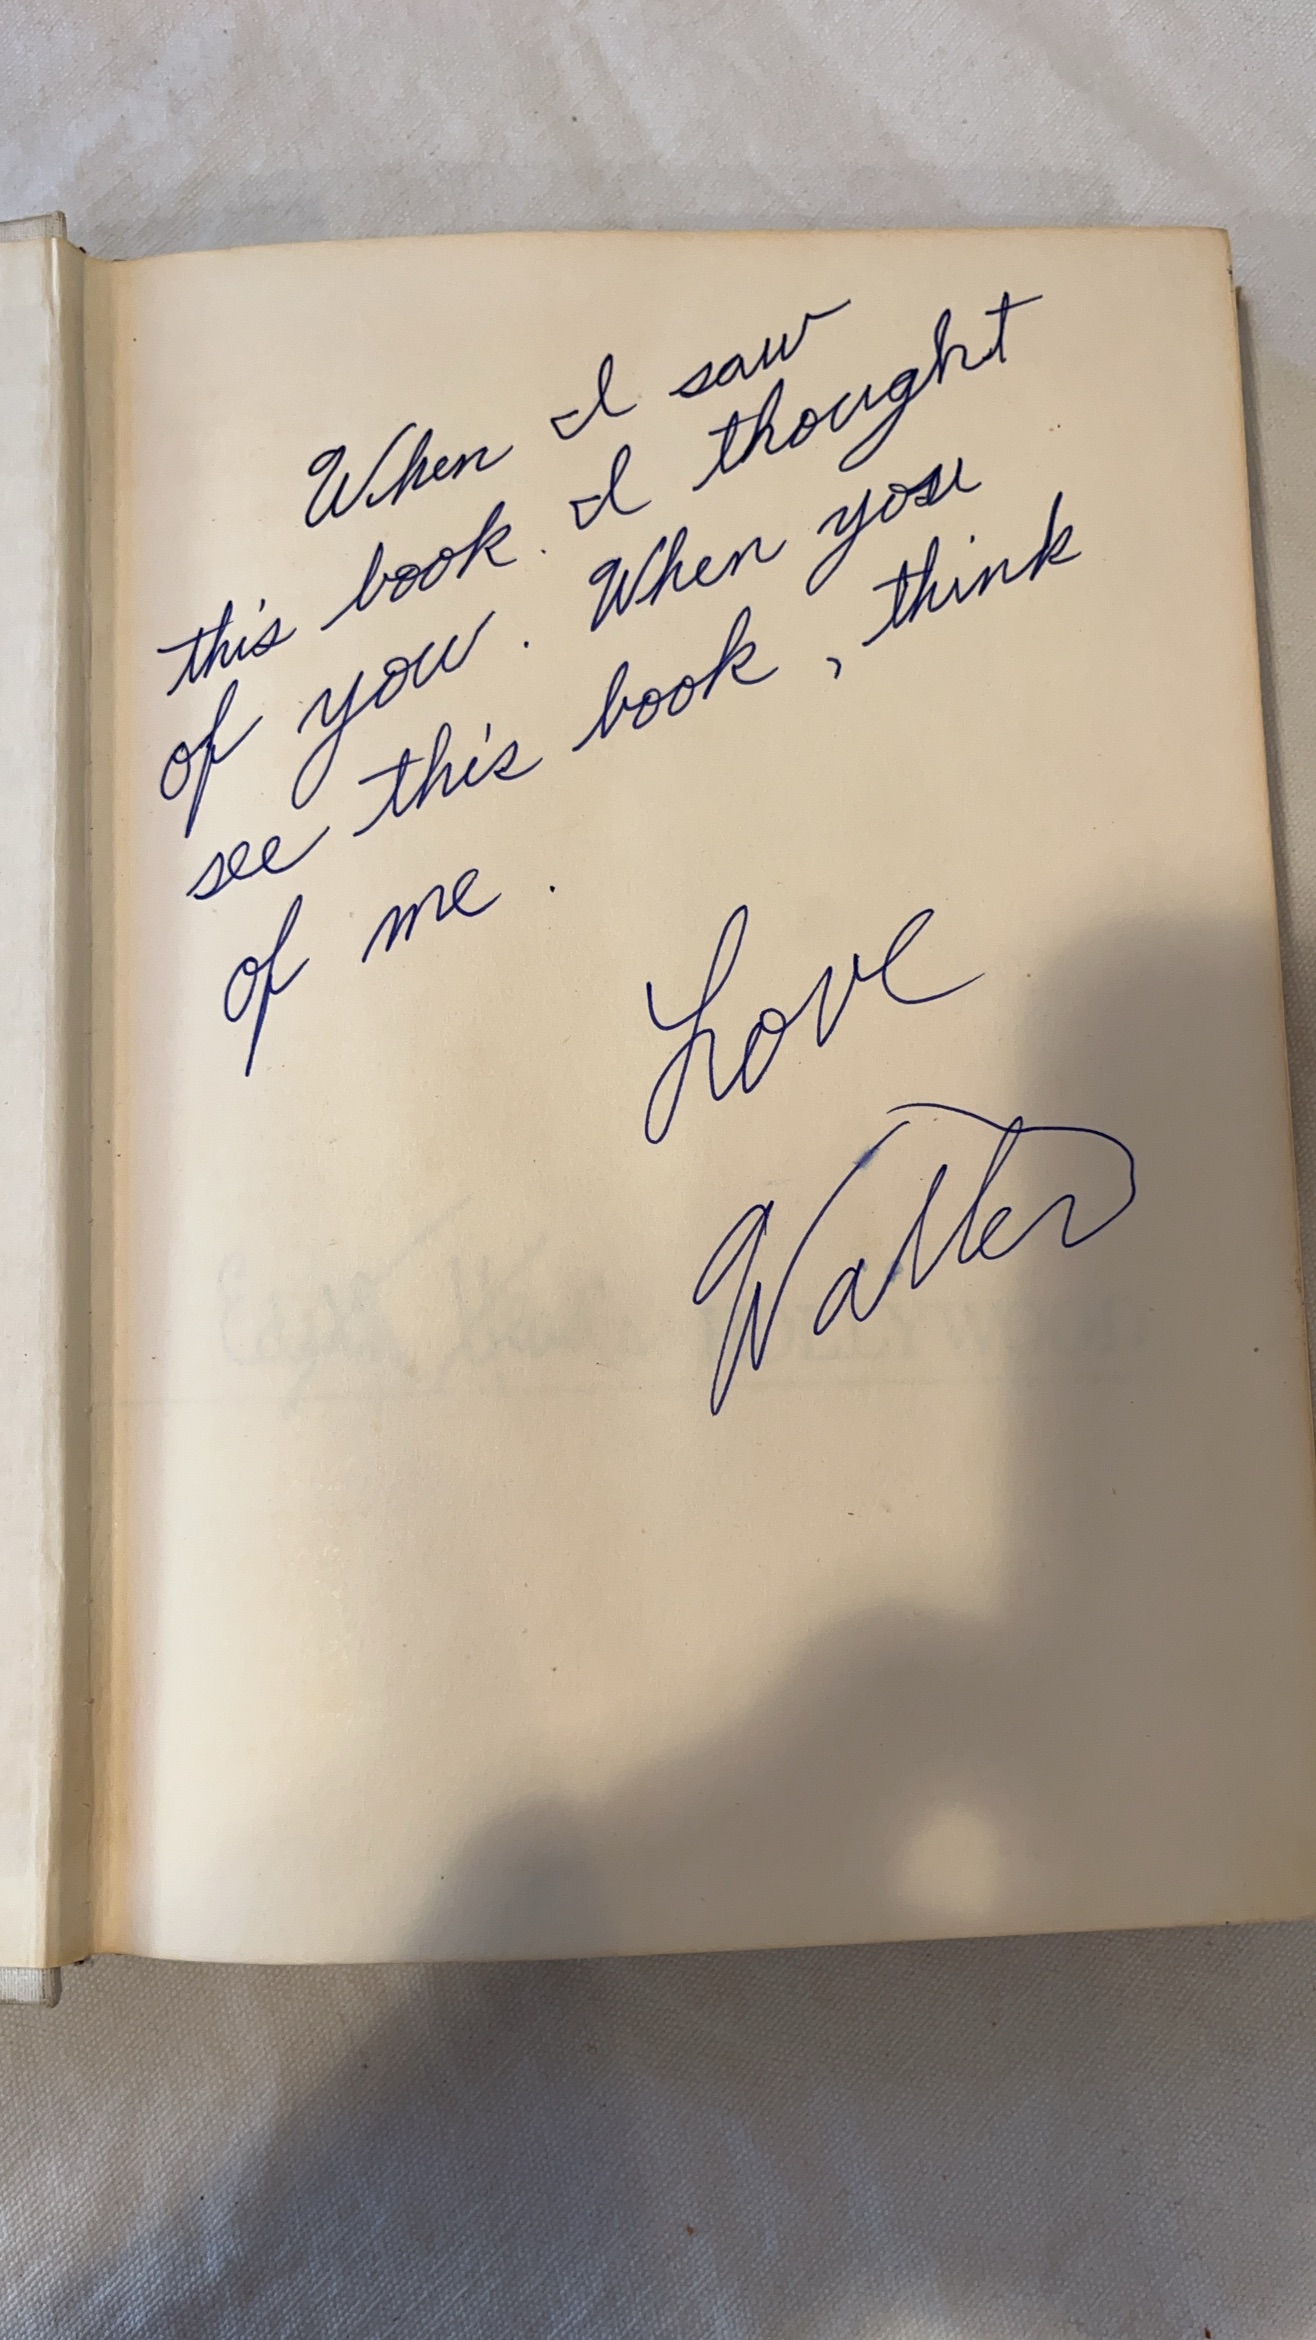 When I saw
this book. I thought
of you. When you
see this book, think
of me.
Love
Walter
HOLLYWOOD